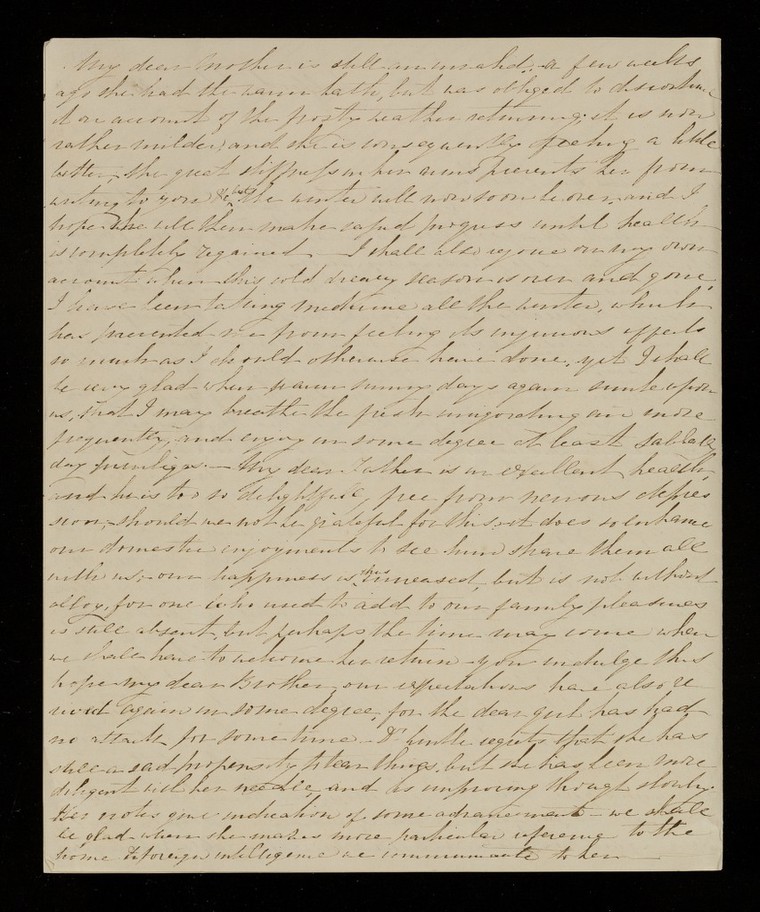 My dear Mother is still an invalid, a few weeks
ago she had the warm bath, but was obliged to discontinue
it on account of the frosty weather returning; it is now
rather milder, and she is consequently feeling a little
better, the great stiffness in her arms prevents her from
writing to you &c, but the winter will now soon be over, and I
hope she will then make rapid progress until health
is completely regained — I shall also rejoice on my own
account when this cold dreary season is over and gone,
I have been taking medicine all the winter, which
has prevented me from feeling its injurious effects
so much as I should otherwise have done, yet I shall
be very glad when warm sunny days again smile upon
us, that I may breathe the fresh invigorating air more
frequently, and enjoy in some degree at least Sabbath
day privileges — My dear Father is in excellent health,
and he is too so delightful, free from nervous depres
sion, should we not be grateful for this, it does so enhance
our domestic enjoyments to see him share them all
with us, our happiness is thus increased, but is not without
alloy, for one who used to add to our family pleasures
is still absent, but perhaps the time may come when
we shall have to welcome her return — you indulge this
hope my dear Brother, our expectations have also re
vived again in some degree, for the dear girl has had
no attack for some time — Dr regrets that she has
still a sad propensity to tear things, but she has been more
diligent with her needle, and is improving though slowly.
Her notes give indication of some advancement — we shall
be glad when she makes more particular reference to the
home & foreign intelligence we communicate to her —